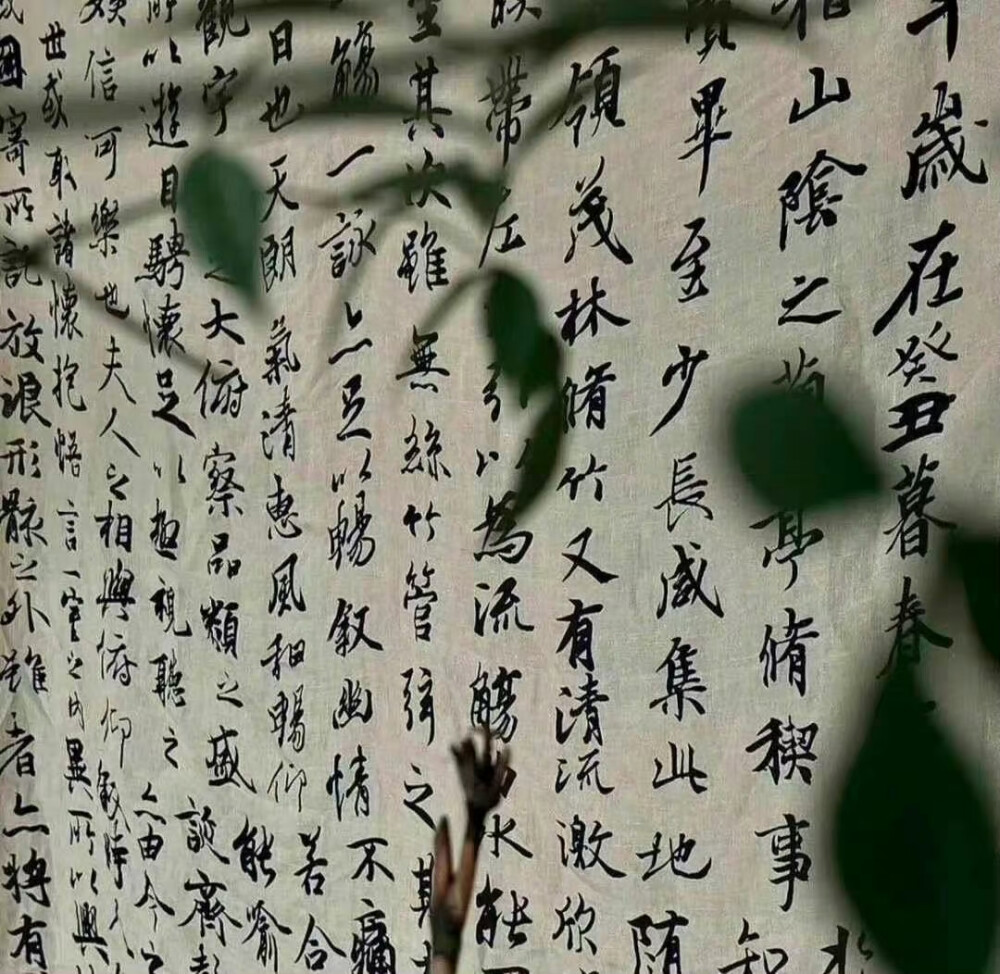 年歲在癸丑暮春
山陰之蘭亭脩稧事
賢畢至少長咸集此地
領茂林脩竹又有清流激欣
帶左引以為流觴水能
坐其次雖無絲竹管弦之其
觴一詠亦足以暢叙幽情不痛
日也天朗氣清惠風和暢仰若合
觀宇之大俯察品類之盛能喻
所以遊目騁懷足以極視聽之談齊彭
娛信可樂也夫人之相與俯仰亦由今之
世或取諸懷抱悟言一室之內異所以興
因寄所託放浪形骸之外雖者亦將有